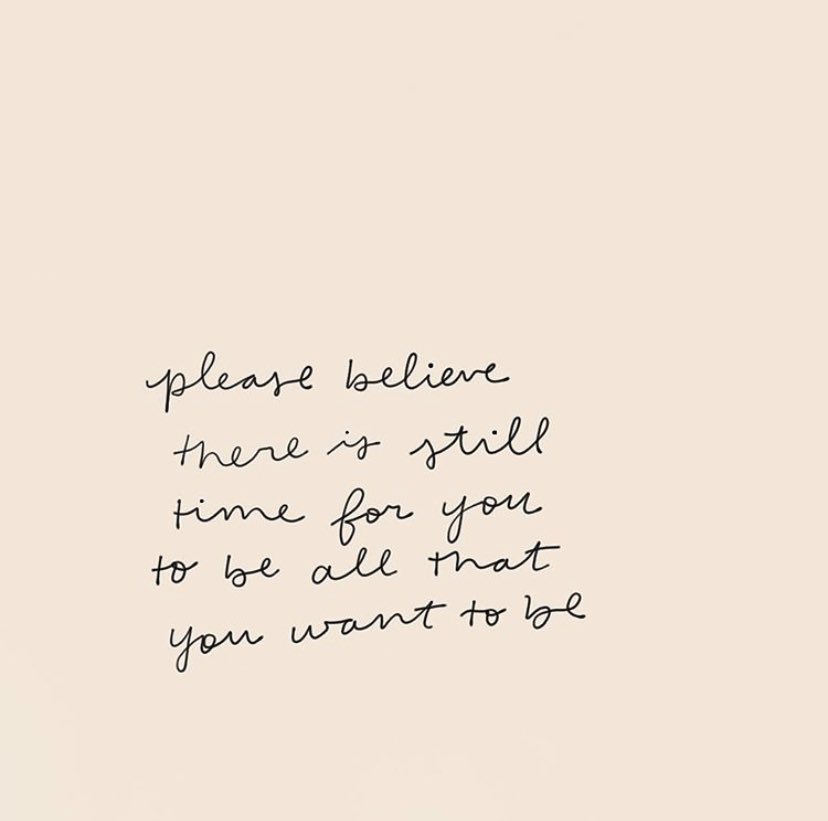 please believe
there is still
time for you
to be all that
you want to be